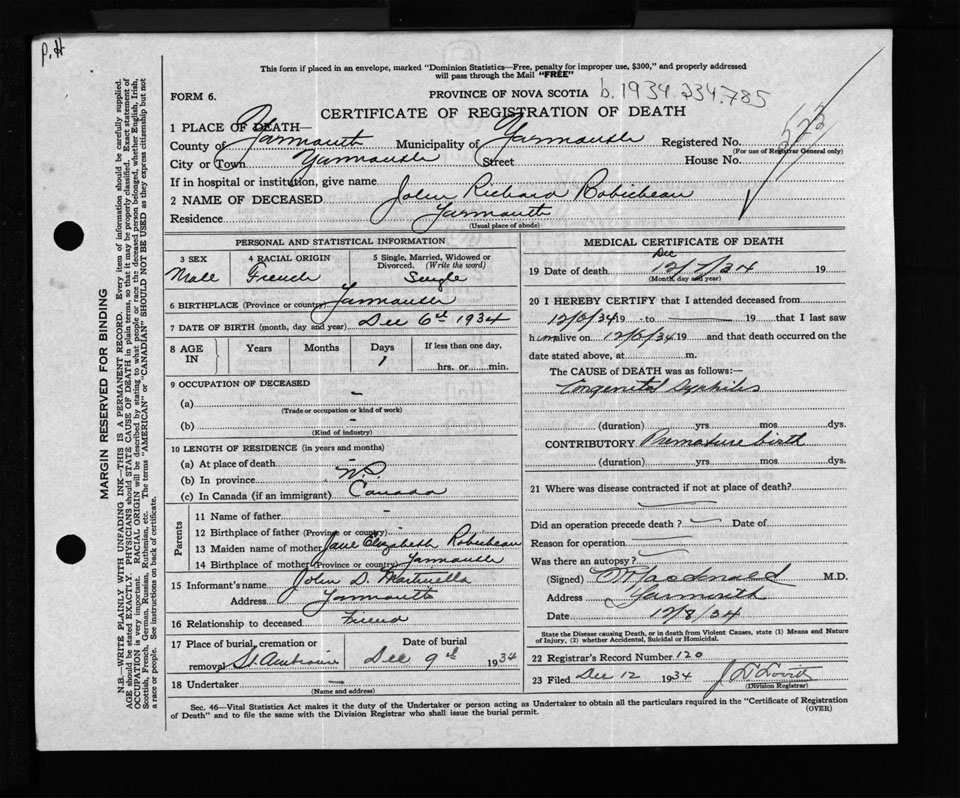 P.H
This form if placed in an envelope, marked "Dominion Statistics—Free, penalty for improper use, $300," and properly addressed
will pass through the Mail "FREE"
FORM 6.
PROVINCE OF NOVA SCOTIA b.1934.234.785
CERTIFICATE OF REGISTRATION OF DEATH
1 PLACE OF DEATH—
County of Yarmouth Municipality of Yarmouth Registered No.
(For use of Registrar General only)
City or Town Yarmouth Street House No.
If in hospital or institution, give name
2 NAME OF DECEASED John Richard Robicheau
Residence Yarmouth
(Usual place of abode)
PERSONAL AND STATISTICAL INFORMATION
3 SEX 4 RACIAL ORIGIN 5 Single, Married, Widowed or
Divorced. (Write the word)
Male French Single
6 BIRTHPLACE (Province or country) Yarmouth
7 DATE OF BIRTH (month, day and year) Dec 6th 1934
8 AGE IN Years Months Days If less than one day,
1 hrs. or min.
9 OCCUPATION OF DECEASED
(a) –
(Trade or occupation or kind of work)
(b) –
(Kind of industry)
10 LENGTH OF RESIDENCE (in years and months)
(a) At place of death
(b) In province
(c) In Canada (if an immigrant) Canada
Parents
11 Name of father –
12 Birthplace of father (Province or country) –
13 Maiden name of mother Jane Elizabeth Robicheau
14 Birthplace of mother (Province or country) Yarmouth
15 Informant's name John D.
Address Yarmouth
16 Relationship to deceased Friend
17 Place of burial, cremation or Date of burial
removal St Ambroise Dec 9th 1934
18 Undertaker –
(Name and address)
MEDICAL CERTIFICATE OF DEATH
Dec
19 Date of death 12/7/34 19
(Month, day and year)
20 I HEREBY CERTIFY that I attended deceased from
12/6/34 19 to 19 that I last saw
him alive on 12/6/34 19 and that death occurred on the
date stated above, at m.
The CAUSE of DEATH was as follows:—
Congenital Syphilis
(duration) yrs mos dys.
CONTRIBUTORY Premature birth
(duration) yrs mos dys.
21 Where was disease contracted if not at place of death?
Did an operation precede death? Date of
Reason for operation
Was there an autopsy?
(Signed) Macdonald M.D.
Address Yarmouth
Date 12/8/34
State the Disease causing Death, or in death from Violent Causes, state (1) Means and Nature
of Injury, (2) whether Accidental, Suicidal or Homicidal.
22 Registrar's Record Number 120
23 Filed Dec 12 1934
(Division Registrar)
Sec. 46—Vital Statistics Act makes it the duty of the Undertaker or person acting as Undertaker to obtain all the particulars required in the "Certificate of Registration
of Death" and to file the same with the Division Registrar who shall issue the burial permit. (OVER)
MARGIN RESERVED FOR BINDING
N.B.—WRITE PLAINLY WITH UNFADING INK—THIS IS A PERMANENT RECORD. Every item of information should be carefully supplied.
AGE should be stated EXACTLY. PHYSICIANS should STATE CAUSE OF DEATH in plain terms, so that it may be properly classified. Exact statement of
OCCUPATION is very important. RACIAL ORIGIN will be described by stating to what people or race the deceased person belonged, whether English, Irish,
Scottish, French, German, Russian, Ruthenian, etc. The terms "AMERICAN" or "CANADIAN" SHOULD NOT BE USED as they express citizenship but not
a race or people. See instructions on back of certificate.